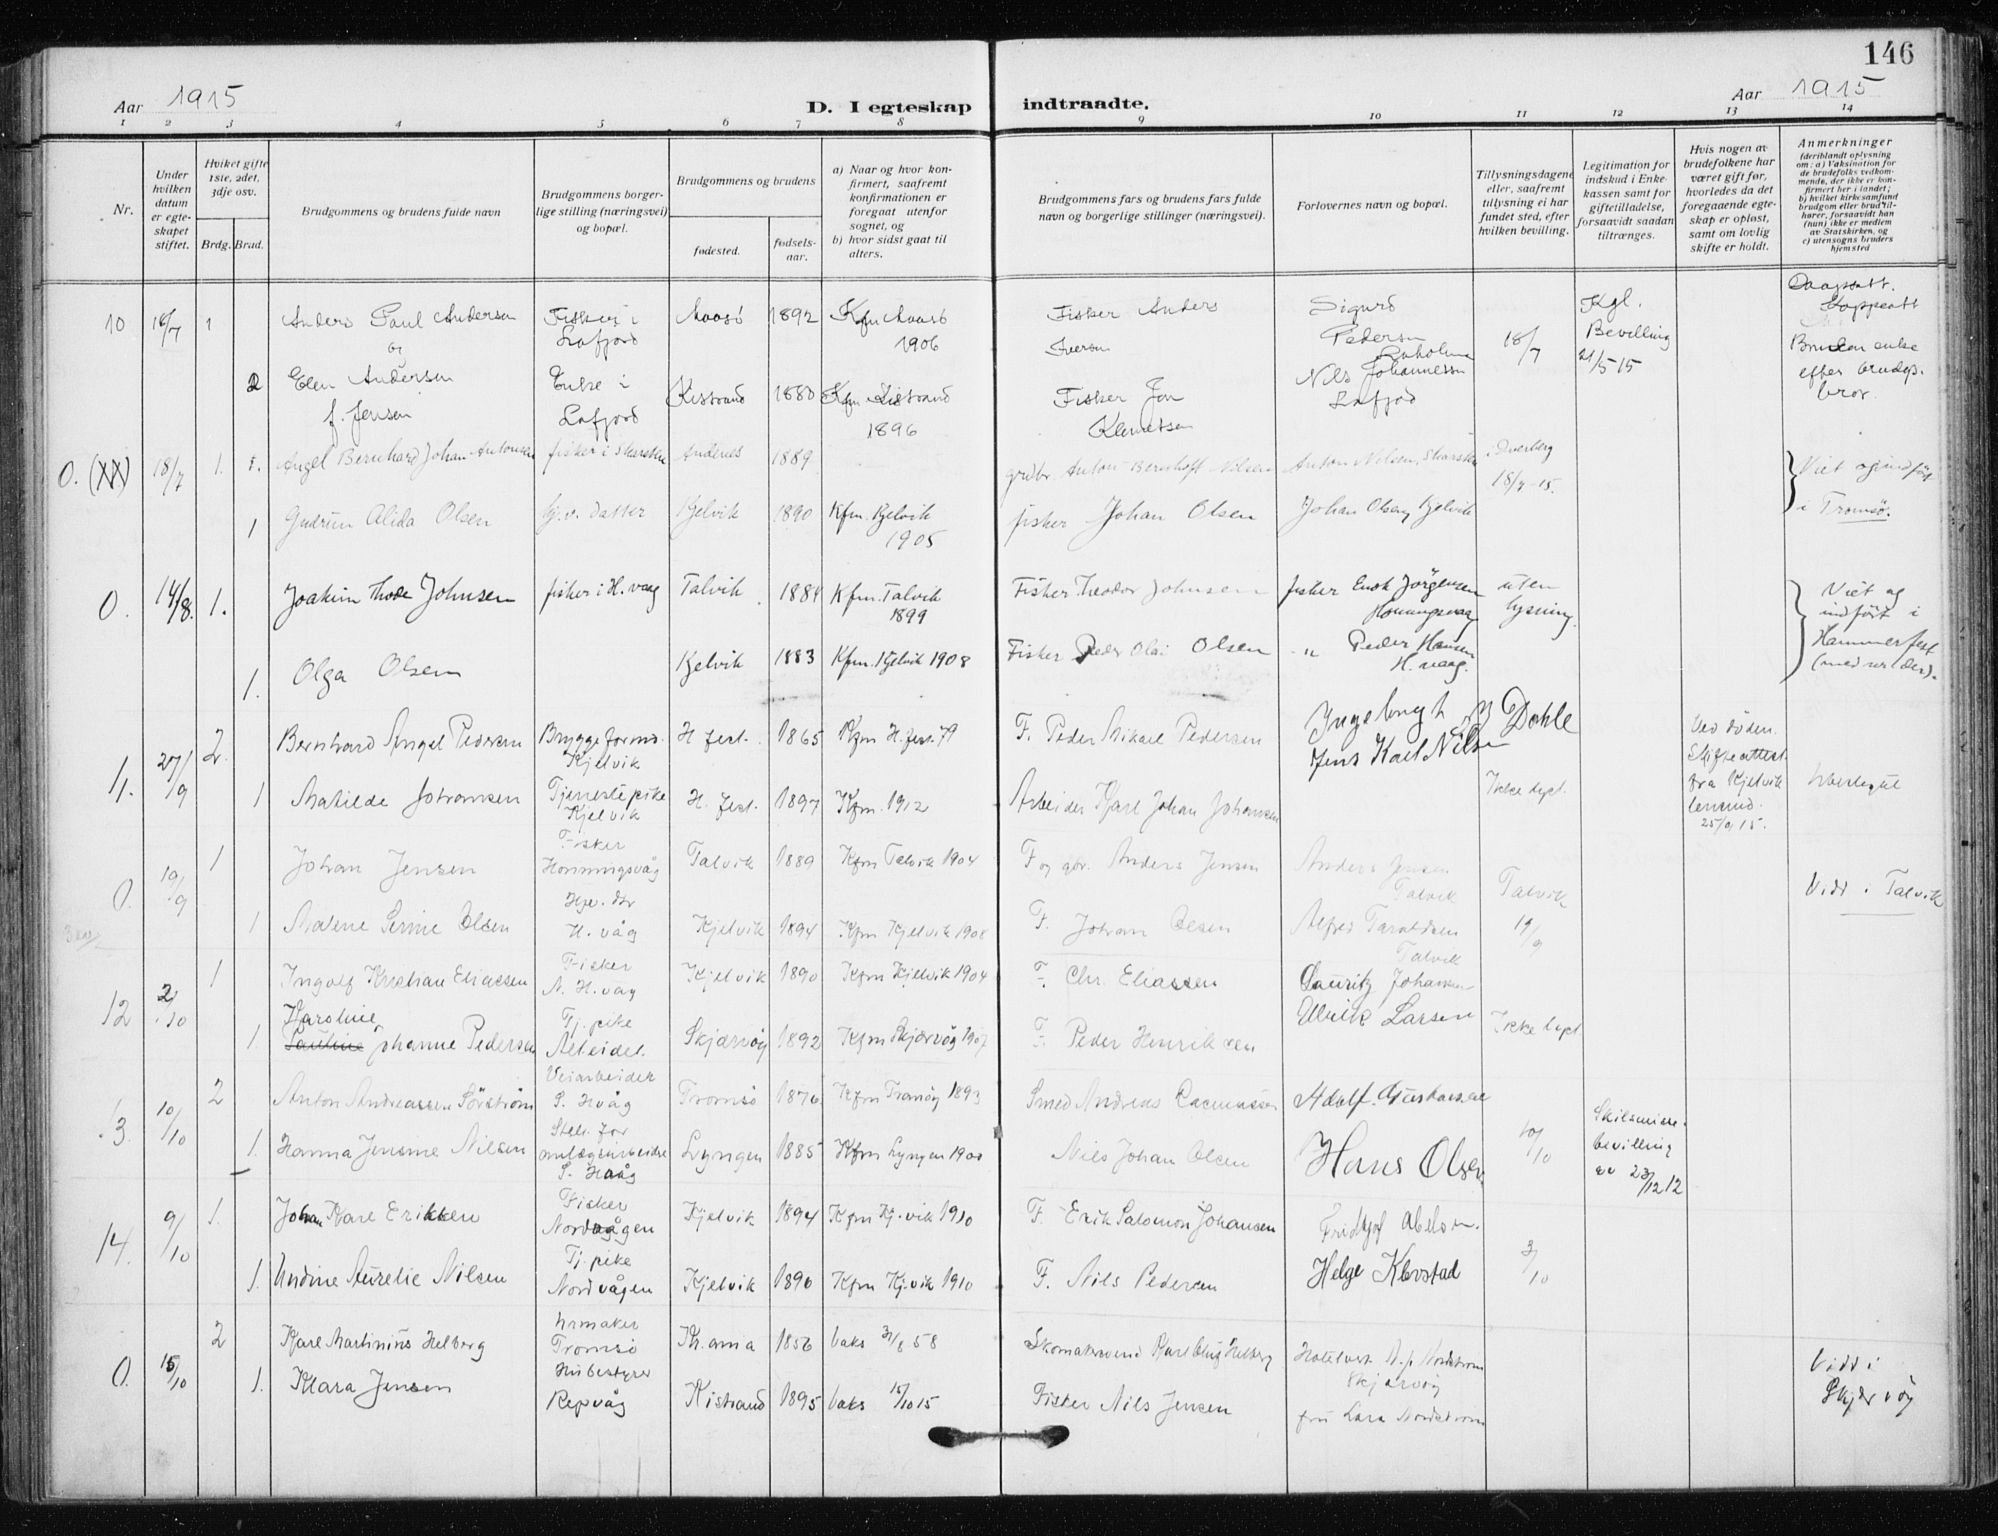 146
Aar 1915
D. I egteskap indtraadte.
Aar 1915
1 2 3 4 5 6 7 8 9 10 11 12 13 14
Nr.
Under hvilken datum er egteskapet stiftet.
Hviket gifte 1ste, 2det, 3dje osv.
Brdg. Brud.
Brudgommens og brudens fulde navn
Brudgommens borgerlige stilling (næringsvei) og bopæl.
Brudgommens og brudens
fødested.
fødselsaar.
a) Naar og hvor konfirmert, saafremt konfirmationen er foregaat utenfor sognet, og
b) hvor sidst gaat til alters.
Brudgommens fars og brudens fars fulde navn og borgerlige stillinger (næringsvei).
Forlovernes navn og bopæl.
Tillysningsdagene eller, saafremt tillysning ei har fundet sted, efter hvilken bevilling.
Legitimation for indskud i Enkekassen samt for giftetilladelse, forsaavidt saadan tiltrænges.
Hvis nogen av brudefolkene har været gift før, hvorledes da det foregaaende egteskap er opløst, samt om lovlig skifte er holdt.
Anmerkninger
(deriblandt oplysning om: a) Vaksination for de brudefolks vedkommende, der ikke er konfirmert her i landet; b) hvilket kirkesamfund brudgom eller brud tilhører, forsaavidt han (hun) ikke er medlem av Statskirken, og c) utensogns bruders hjemsted
10 16/7 1 Anders Paul Andersen Fisker i Lafjord Maasö 1892 Kfm Maasö 1906 Fisker Anders Iversen Sigurd Pedersen 18/7 Kgl. Bevilling 21/5 15
og
2 Elen Andersen f. Jensen Enke i Lafjord Kistrand 1880 Kfm Kistrand 1896 Fisker Jon Klemetsen Nils Johannessen Lafjord Bruden enke efter brudgs. bror.
0. 18/7 1. Angel Bernhard Johan Antonsen fisker i Skarsten Andenes 1889 grdbr. Anton Bernhoft Nilsen Anton Nilsen, Skarsten i Dverberg 18/7-15. Viet og indført i Tromsø.
1 Gudrun Alida Olsen hj.v. datter Kjelvik 1890 Kfm. Kjelvik 1905 fisker Johan Olsen Johan Olsen, Kjelvik
0. 14/8. 1. Joakim Thode Johnsen fisker i H. vaag Talvik 1884 Kfm. Talvik 1899 Fisker Theodor Johnsen fisker Enok Jørgensen Honningsvaag uten lysning. Viet og indført i Hammerfest
1. Olga Olsen Kjelvik 1883 Kfm. Kjelvik 1908 Fisker Peder Olai Olsen " Peder Hansen H. vaag.
11. 27/9 2. Bernhard Angel Pedersen Bryggeformd. Kjelvik H. fest. 1865 Kfm H. fest. 79 F. Peder Mikael Pedersen Ingebrigt Dahle Jens Karl Nilsen Ved døden. Skifteattest fra Kjelvik lensmd. 25/9 15.
1 Matilde Johansen Tjenestepike Kjelvik H. fest. 1897 Kfm. 1912 Arbeider Karl Johan Johansen Ikke lyst.
0. 19/9 1 Johan Jensen Fisker Honningsvåg Talvik 1889 Kfm Talvik 1904 F og gbr. Anders Jensen Anders Jensen Talvik Talvik 19/9 Vidd i Talvik
1 Malene Serine Olsen H. våg Kjelvik 1894 Kfm Kjelvik 1908 F. Johan Olsen Alfred Taraldsen Talvik
12 2/10 1 Ingolf Kristian Eliassen Fisker N. H. våg Kjelvik 1890 Kfm Kjelvik 1904 F. Chr. Eliassen Lauritz Johansen
1 Karoline Johanne Pedersen Tj. pike Alteidet. Skjærvøy 1892 Kfm Skjærvøy 1907 F. Peder Henriksen Ulrik Larsen Ikke lyst
13. 10/10 2 Anton Andreassen Sörström Veiarbeider S. Hvåg Tromsö 1876 Kfm Tranöy 1893 Smed Andreas Rasmussen Adolf Gustavsen 10/10 Skilsmissebevilling av 23/12 12
1. Hanna Jensine Nilsen Stell. for anlægsarbeidere S. Hvåg Lyngen 1885 Kfm Lyngen 1900 Nils Johan Olsen Hans Olsen
14. 9/10 1. Johan Kare Erikken Fisker Nordvågen Kjelvik 1894 Kfm Kj.vik 1910 F. Erik Salomon Johansen Fridtjof Abelsen. 3/10
1. Undine Aurelie Nilsen Tj. pike Nordvågen Kjelvik 1896 Kfm Kj.vik 1910 F. Nils Pedersen Helge Klevstad
0. 15/10 2 Karl Martinius Helberg Urmaker Tromsö Kr.ania 1856 vaks 31/8 58 Skomakersvend Karl Helberg Hotelvert N. p. Nordström Skjervöy Vidd i Skjervöy
1. Klara Jensen Husbestyrer Repvåg Kistrand 1895 vaks 15/10 15 Fisker Nils Jensen fru Lara Nordström